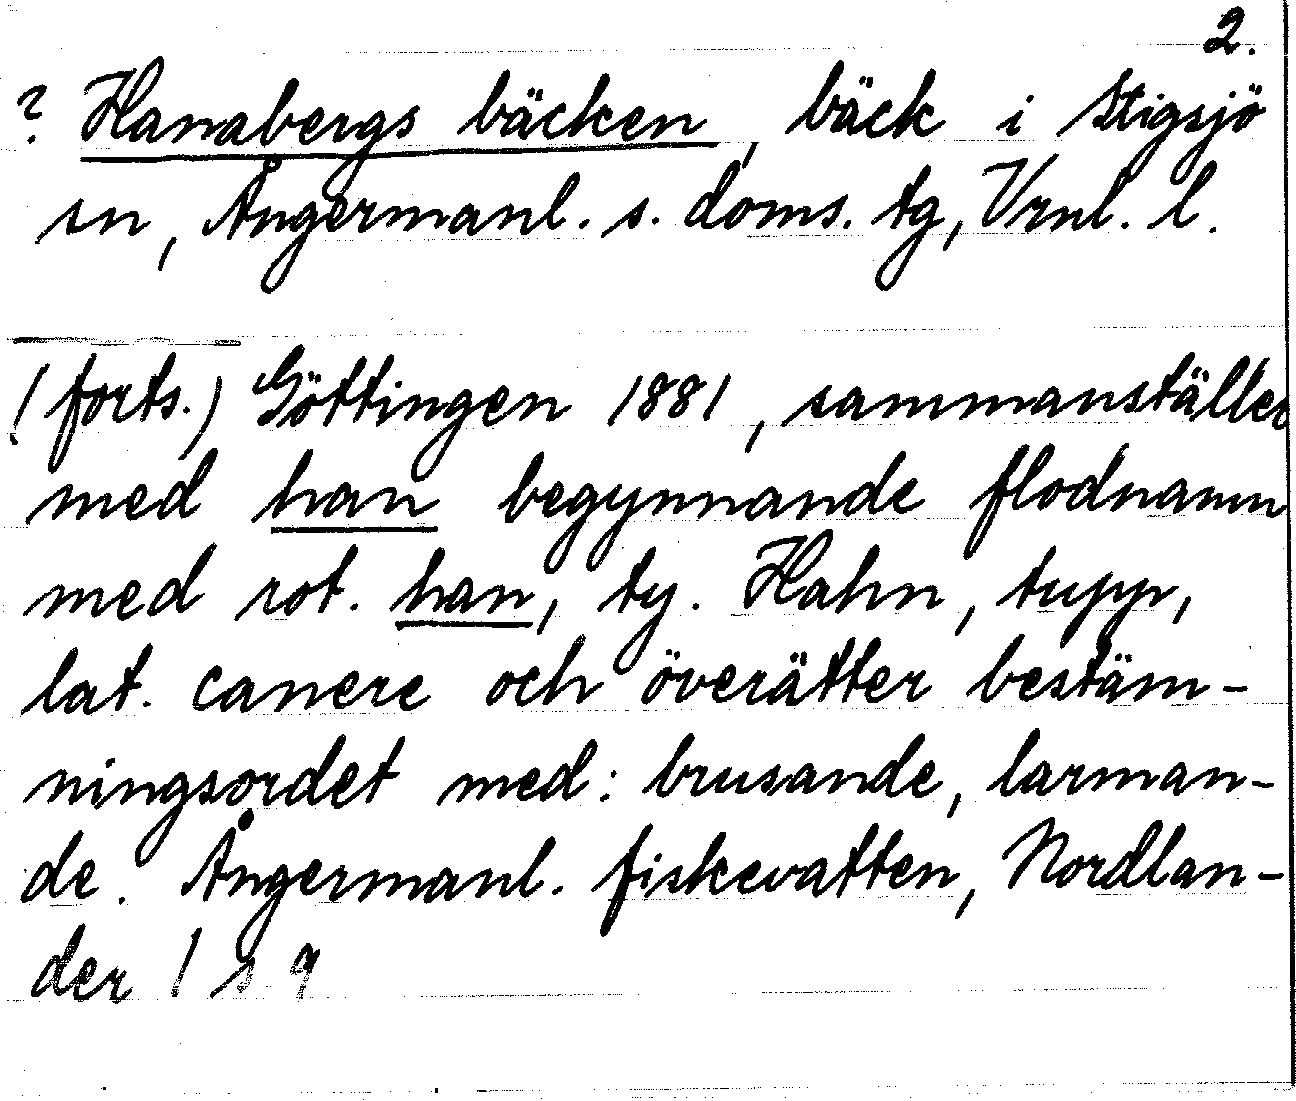 2.
? Hanabergs bäcken, bäck i Stigsjö
sn, Ångermanl. s. doms. tg, Vrnl. l.
(forts.) Göttingen 1881, sammanställer
med han begynnande flodnamn
med rot. han, ty. Hahn, tupp,
lat. canere och överätter bestäm-
ningsordet med: brusande, larman-
de. Ångermanl. fiskevatten, Nordlan-
der 1 s 9